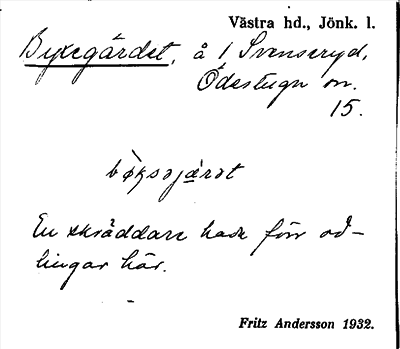 Västra hd., Jönk. l.
Byxegärdet, å 1 Svenseryd,
Ödestugu sn.
15.
En skräddare hade förr od-
lingar här.
Fritz Andersson 1932.